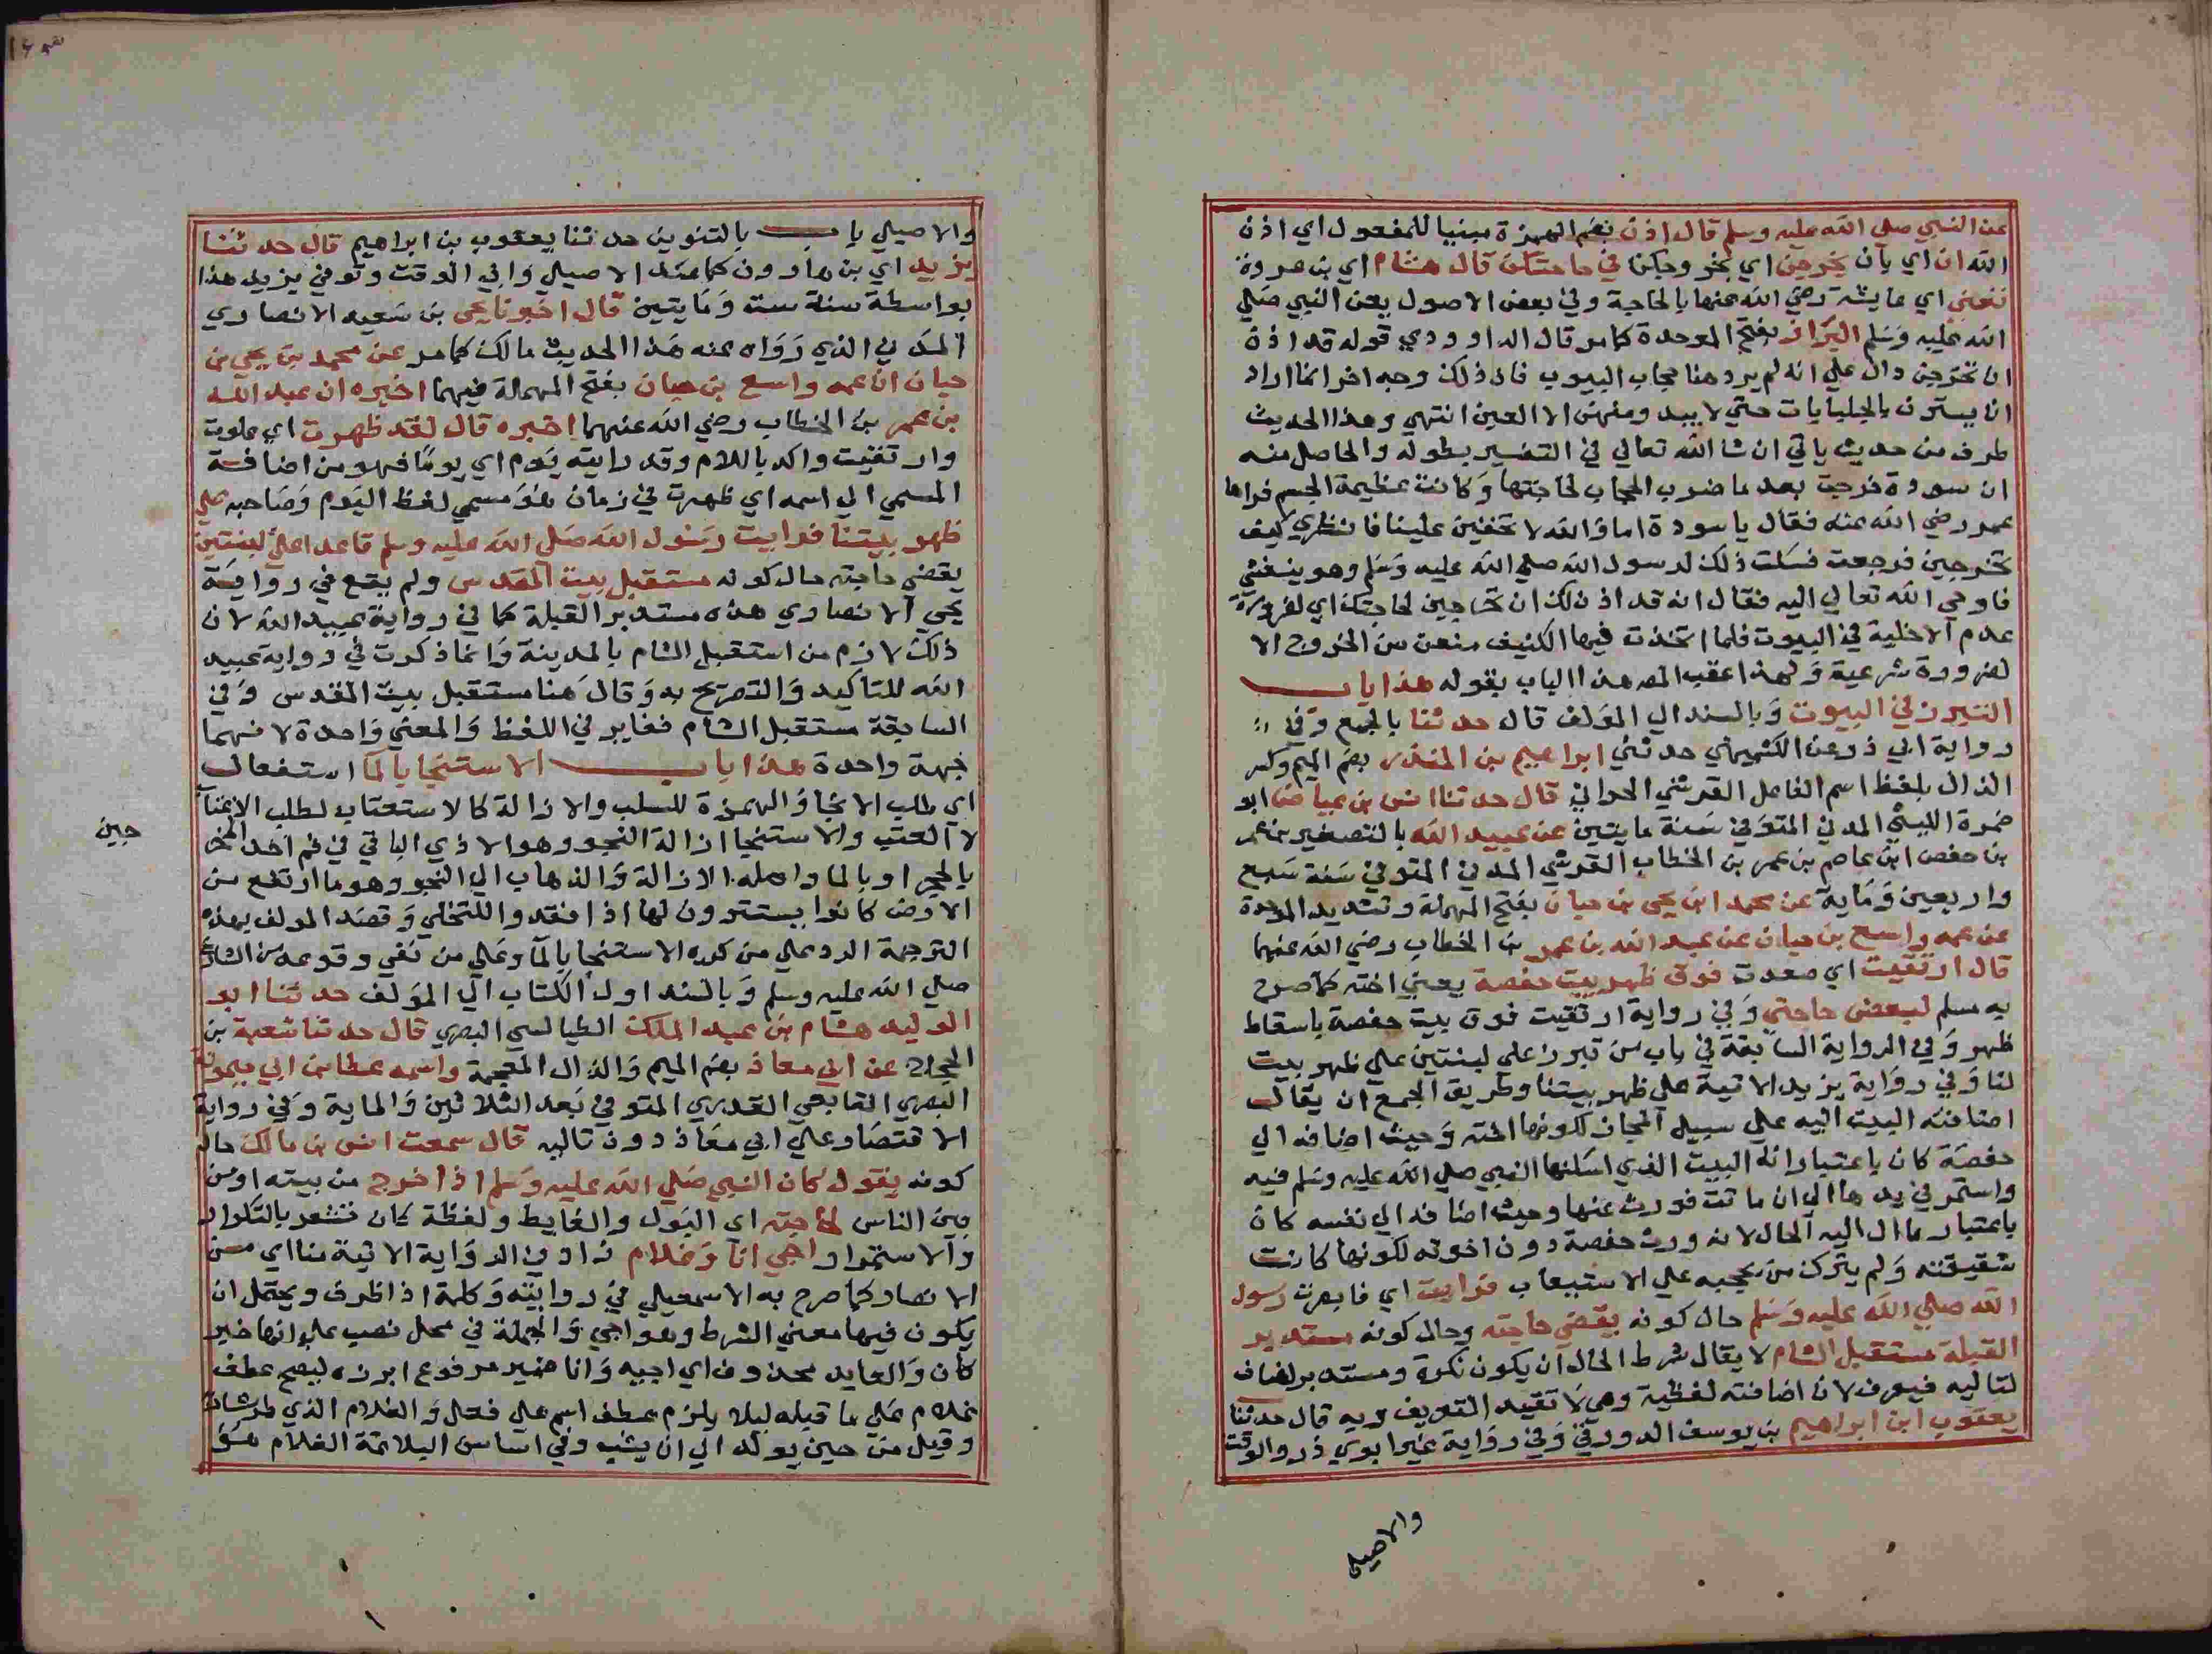 عن النبي صلي الله عليه وسلم قال اذن بضم الهمزة مبنيا للمفعول اي اذن
الله ان اي بان يخرجن اي بخروجكن في حاجتكن قال هشام اي بن عروة
تعني اي عايشة رضي الله عنها بالحاجة وفي بعض الاصول يعن النبي صلي
الله عليه وسلم البراز بفتح الموحدة كما مر قال الداوودي قوله قد اذن
ان تخرجن دال علي انه لم يرد هنا حجاب البيوت فان ذلك وجه اخر انما اراد
ان يستترن بالجلبابات حتي لا يبدو منهن الا العين انتهي وهذا الحديث
طرف من حديث ياتي ان شا الله تعالي في التفسير بطوله والحاصل منه
ان سودة خرجت بعد ما ضرب الحجاب لحاجتها وكانت عظيمة الجسم فراها
عمر رضي الله عنه فقال يا سودة اما والله لا تخفين علينا فانظري كيف
تخرجين فرجعت فشكت ذلك لرسول الله صلي الله عليه وسلم وهو يتعشي
فاوحي الله تعالي اليه فقال انه قد اذن لكن ان تخرجن لحاجتكن اي لضرورة
عدم الاخلية في البيوت فلما اتخذت فيها الكنيف منعن من الخروج الا
لضرورة شرعية ولهذا عقب المص هذا الباب بقوله هذا باب
التبرز في البيوت وبالسند الي المولف قال حدثنا بالجمع وفي
رواية ابي ذر عن الكشميهني حدثني ابراهيم بن المنذر بضم الميم وكسر
الذال بلفظ اسم الفاعل القرشي الحزاني قال حدثنا انس بن عياض ابو
ضمرة الليثي المدني المتوفي سنة مايتين عن عبيد الله بالتصغير بن عمر
بن حفص ابن عاصم بن عمر بن الخطاب القرشي المدني المتوفي سنة سبع
واربعين وماية عن محمد ابن يحي بن حبان بفتح المهملة وتشديد الموحدة
عن عمه واسع بن حبان عن عبد الله بن عمر بن الخطاب رضي الله عنهما
قال ارتقيت اي صعدت فوق ظهر بيت حفصة يعني اخته كما صرح
به مسلم لبعض حاجتي وفي رواية ارتقيت فوق بيت حفصة باسقاط
ظهر وفي الرواية السابقة في باب من تبرز علي لبنتين علي ظهر بيت
لنا وفي رواية يزيد الاتية علي ظهر بيتنا وطريق الجمع ان يقال
اضافته البيت اليه علي سبيل المجاز لكونها اخته وحيث اضافه الي
حفصة كان باعتبار انه البيت الذي اسكنها النبي صلي الله عليه وسلم فيه
واستمر في يدها الي ان ماتت فورث عنها وحيث اضافه الي نفسه كان
باعتبار ما ال اليه الحال لانه ورث حفصة دون اخوته لكونها كانت
شقيقته ولم يترك من يحجبه علي الاستيعاب فرايت اي فابصرت رسول
الله صلي الله عليه وسلم حال كونه يقضي حاجته وحال كونه مستدبر
القبلة مستقبل الشام لا يقال شرط الحال ان يكون نكرة ومستدبر لضاف
لتاليه فيعرف لان اضافته لفظية وهي لا تفيد التعريف وبه قال حدثنا
يعقوب ابن ابراهيم بن يوسف الدورقي وفي رواية غير ابوي ذر والوقت
والاصيلي
والاصيلي باب بالتنوين حدثنا يعقوب بن ابراهيم قال حدثنا
يزيد اي بن هارون كما عند الاصيلي وابي الوقت وتوفي يزيد هذا
بواسطة سنة ست ومايتين قال اخبرنا يحي بن سعيد الانصاري
المدني الذي رواه عنه هذا الحديث مالك كما مر عن محمد بن يحي بن
حبان ان عمه واسع بن حبان بفتح المهملة فيهما اخبره ان عبد الله
بن عمر بن الخطاب رضي الله عنهما اخبره قال لقد ظهرت اي علوت
وارتقيت واكد باللام وقد رايته يوم اي يوما فهو من اضافة
المسمي الي اسمه اي ظهرت في زمان هو مسمي لفظ اليوم وصاحبه علي
ظهر بيتنا فرايت رسول الله صلي الله عليه وسلم قاعدا علي لبنتين
يقضي حاجته حال كونه مستقبل بيت المقدس ولم يقع في رواية
يحي الانصاري هذه مستدبر القبلة كما في رواية عبيد الله لان
ذلك لازم من استقبل الشام بالمدينة وانما ذكرت في رواية عبيد
الله للتاكيد والتصريح به وقال هنا مستقبل بيت المقدس وفي
السابقة مستقبل الشام فغاير في اللفظ والمعني واحدة لانهما
جهة واحدة هذا باب الاستنجا بالما استفعال
اي طلب الانجا والهمزة للسلب والازالة كالاستعتاب لطلب الاعتاب
لا العتب والاستنجا ازالة النجو وهو الاذي الباقي في فم احد المخرجين
بالحجر او بالما واصله الازالة والذهاب الي النجو وهو ما ارتفع من
الارض كانوا يستترون لها اذا قعدوا للتخلي وقصد المولف بهذه
الترجمة الرد علي من كره الاستنجا بالما وعلي من نفي وقوعه من الشارع
صلي الله عليه وسلم وبالسند اول الكتاب الي المولف حدثنا ابو
الوليد هشام بن عبد الملك الطيالسي البصري قال حدثنا شعبة بن
الحجاج عن ابي معاذ بضم الميم والذال المعجمة واسمه عطا بن ابي ميمونة
البصري التابعي القدري المتوفي بعد الثلاثين والماية وفي رواية
الاقتصار علي ابي معاذ دون تاليه قال سمعت انس بن مالك حال
كونه يقول كان النبي صلي الله عليه وسلم اذا خرج من بيته او من
بين الناس لحاجته اي البول والغايط ولفظة كان تشعر بالتكرار
والاستمرار اجي انا وغلام زاد في الرواية الاتية منا اي من
الانصار كما صرح به الاسمعيلي في روايته وكلمة اذا ظرف ويحتمل ان
يكون فيها معني الشرط وهو اجي والجملة في محل نصب علي انها خبر
كان والعايد محذوف اي اجيه وانا ضمير مرفوع ابرزه ليصح عطف
غلام علي ما قبله ليلا يلزم عطف اسم علي فعل والغلام الذي طر شاربه
وقيل من حين يولد الي ان يشب وفي اساس البلاغة الغلام هو